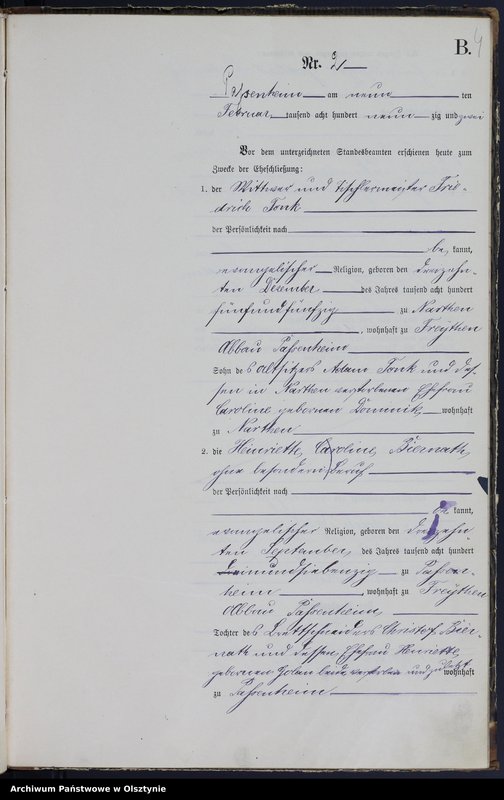 B. 4
Nr. 21
Passenheim am neun ten
Februar tausend acht hundert neun zig und zwei
Vor dem unterzeichneten Standesbeamten erschienen heute zum
Zwecke der Eheschließung:
1. der Wittwer und Tischlermeister Frie-
drich Tonk
der Persönlichkeit nach
be kannt,
evangelischer Religion, geboren den dreizehn-
ten December des Jahres tausend acht hundert
fünfundfünfzig zu Narthen
, wohnhaft zu Freythen
Abbau Passenheim
Sohn des Altsitzers Adam Tonk und des-
sen in Narthen verstorbenen Ehefrau
Caroline gebornen wohnhaft
zu Narthen
2. die Henriette, Caroline, Biernath,
ohne besondern Beruf
der Persönlichkeit nach
be kannt,
evangelischer Religion, geboren den dreizehn-
ten September des Jahres tausend acht hundert
neunundsiebenzig zu Passen-
heim, wohnhaft zu Freythen
Abbau Passenheim
Tochter des Brettschneiders Christof Bier-
nath und dessen Ehefrau Henriette,
gebornen beide verstorben und zuletzt wohnhaft
zu Passenheim
Archiwum Państwowe w Olsztynie